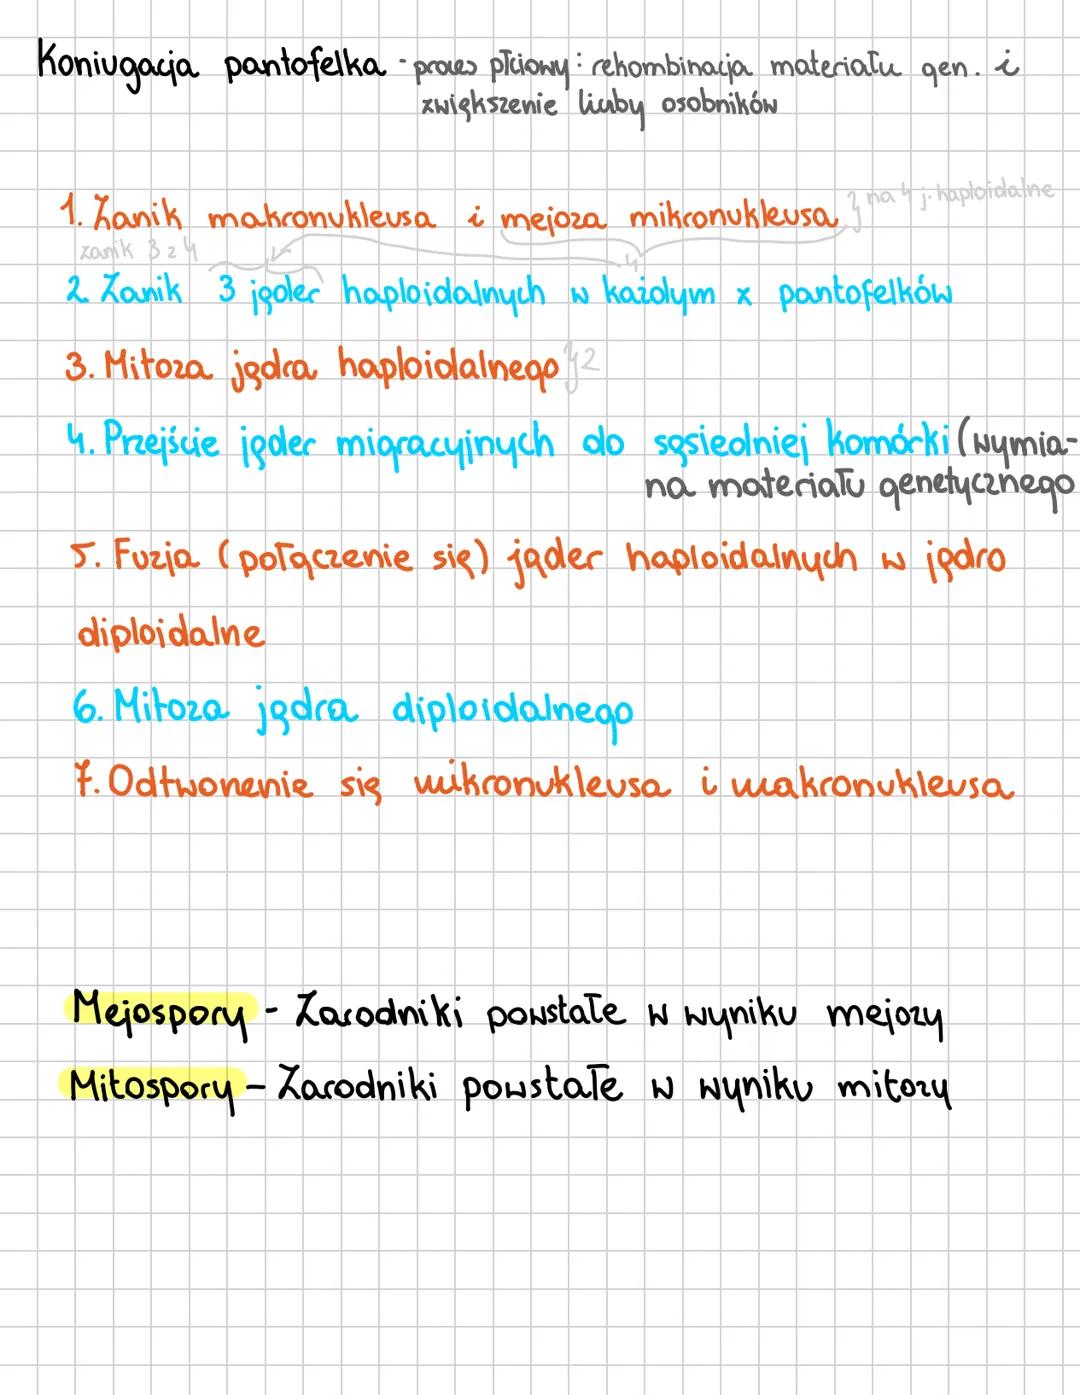 Koniugacja pantofelka - proces płciowy: rekombinacja materiału gen. i
zwiększenie liczby osobników
1. Zanik makronukleusa i mejoza mikronukleusa } na 4 j. haploidalne
zanik 3 z 4
4
2. Zanik 3 jąder haploidalnych w każdym z pantofelków
3. Mitoza jądra haploidalnego } 2
4. Przejście jąder migracyjnych do sąsiedniej komórki (wymia-
na materiału genetycznego
5. Fuzja (połączenie się) jąder haploidalnych w jądro
diploidalne
6. Mitoza jądra diploidalnego
7. Odtworzenie się mikronukleusa i makronukleusa
Mejospory - Zarodniki powstałe w wyniku mejozy
Mitospory - Zarodniki powstałe w wyniku mitozy